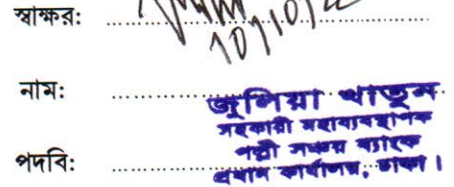 স্বাক্ষর:
10/10/22
নাম:
জুলিয়া খাতুন
সহকারী মহাব্যবস্থাপক
পল্লী সঞ্চয় ব্যাংক
পদবি:
প্রধান কার্যালয়, ঢাকা।